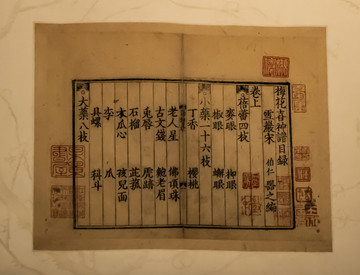 梅花喜神譜目錄
雪巖宋 伯仁 器之編
卷上
蓓蕾四枝
麥眼 柳眼
椒眼 蟹眼
小蘂一十六枝
丁香 櫻桃
老人星 佛頂珠
古文錢 鮑老眉
兔唇 虎跡
石榴 茈菰
木瓜心 孩兒面
李 瓜
貝螺 科斗
大蘂八枝